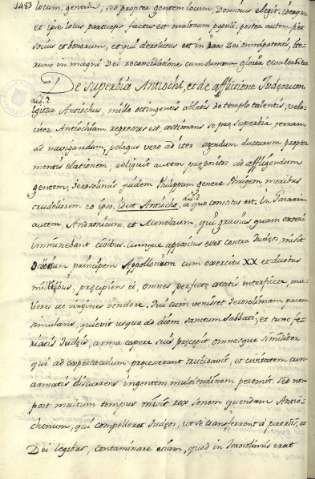 148 locum, gentem, sed propter gentem locum Dominus elegit, ideoque
et ipse locus particeps factus est malorum populi, postea autem fiet
socius et bonorum, et qui derelictus est in ira Dei omnipotentis, ite-
rum in magni Dei reconciliatione cum summa gloria exaltabitur
De superbia Antiochi, et de afflictione Judæorum
cap. 2.
Igitur Antiochus, mille octingentis ablatis de templo talentis, velo-
citer Antiochiam regressus est existimans se præ superbia terram
ad navigandum, pelagus vero ad iter agendum ducturum propter
mentis elationem reliquit autem præpositos ad affligendum
gentem, Jerosolimis quidem Philippum genere Phrygem moribus
crudeliorem eo ipso, a quo constitutus est. In Garizim
autem Andronicum, et Menelaum, qui gravius quam cæteri
imminebant civibus, cumque appositus esset contra Judæos misit
principem Apollonium cum exercitu XX et duobus
millibus, præcipiens ei, omnes perfectæ ætatis interficere, mu-
lieres ac virgines vendere. Qui cum venisset Jerosolimam pacem
simulans, quievit usque ad diem sanctum Sabbati, et tunc fe-
riatis Judæis, arma capere suis præcepit omnesque simul
qui ad expectaculum processerant trucidavit, et civitatem cum
armatis discurrens ingentem multitudinem peremit. Sed non
post multum temporis misit rex senem quendam Antio-
chenum, qui compelleret Judæos, ut se transferrent a patriis, et
Dei legibus, contaminare etiam, quod in Jerosolimis erat